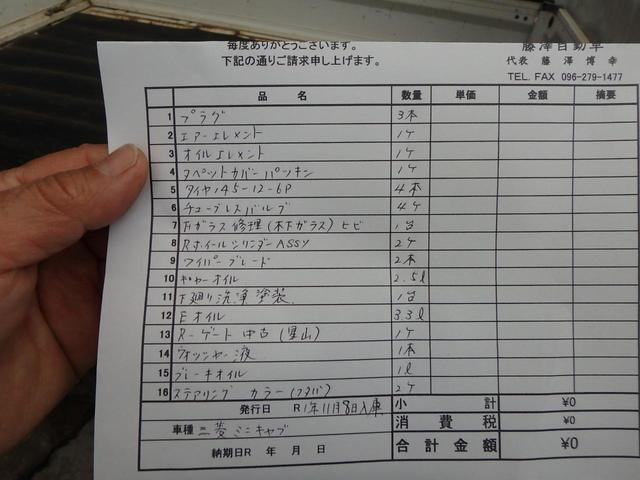 毎度ありがとうございます。
下記の通りご請求申し上げます。
藤澤自動車
代表 藤澤博幸
TEL. FAX 096-279-1477
品名 数量 単価 金額 摘要
1 プラグ 3本
2 エアーエレメント 1ケ
3 オイルエレメント 1ケ
4 タペットカバーパッキン 1ケ
5 タイヤ145-12-6P 4本
6 チューブレスバルブ 4ケ
7 Fガラス修理(木下ガラス)ヒビ 1台
8 Rホイールシリンダー ASSY 2ケ
9 ワイパーブレード 2本
10 ギヤーオイル 2.5ℓ
11 下廻り洗浄塗装 1台
12 Eオイル 3.3ℓ
13 Rゲート中古(星山) 1ケ
14 ウォッシャー液 1本
15 ブレーキオイル 1ℓ
16 ステアリング カラー(フタバ) 2ケ
発行日 R1年11月8日入庫 小計 ¥0
車種 三菱ミニキャブ 消費税 ¥0
納期日R 年 月 日 合計金額 ¥0